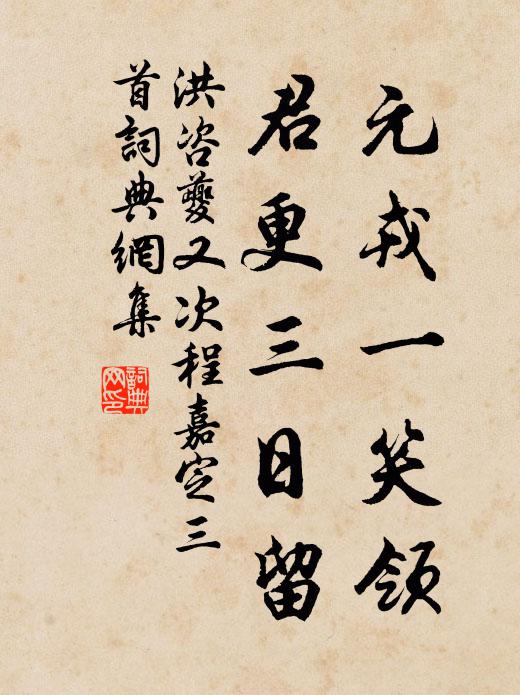 元戎一笑領
君更三日留
洪咨夔又次程嘉定三
首詞典網集
詞典
网印